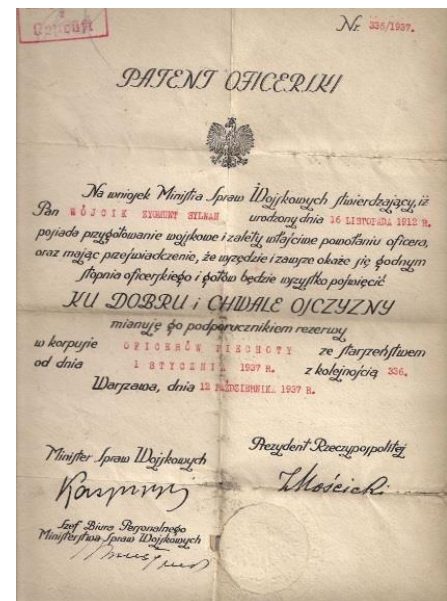 Geprüft
Nr. 336/1937.
PATENT OFICERSKI
Na wniosek Ministra Spraw Wojskowych stwierdzający, iż
Pan WÓJCIK ZYGMUNT SYLWAN urodzony dnia 16 LISTOPADA 1912 R.
posiada przygotowanie wojskowe i zalety właściwe powołaniu oficera,
oraz mając przeświadczenie, że wszędzie i zawsze okaże się godnym
stopnia oficerskiego i gotów będzie wszystko poświęcić
KU DOBRU i CHWALE OJCZYZNY
mianuję go podporucznikiem rezerwy
w korpusie OFICERÓW PIECHOTY ze starszeństwem
od dnia 1 STYCZNIA 1937 R. z kolejnością 336.
Warszawa, dnia 12 PAŹDZIERNIKA 1937 R.
Minister Spraw Wojskowych
Prezydent Rzeczypospolitej
I Mościcki
Szef Biura Personalnego
Ministerstwa Spraw Wojskowych